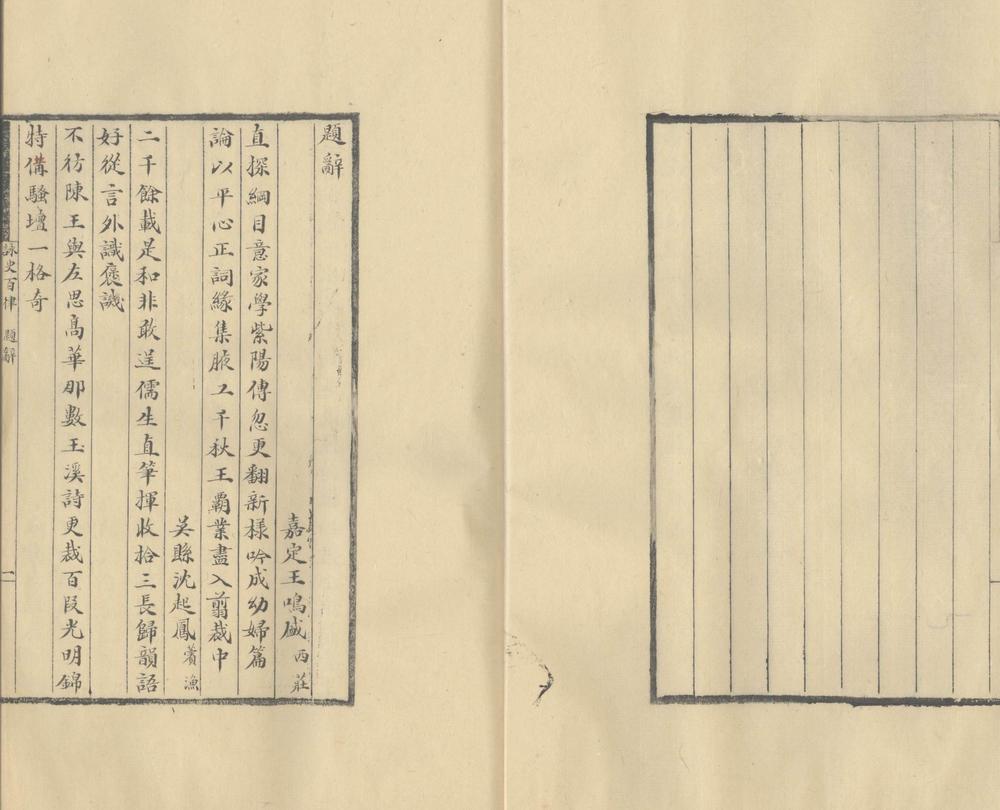 題辭
嘉定王鳴盛西莊
直探綱目意家學紫陽傳忽更翻新様吟成幼婦篇
論以平心正詞緣集腋工千秋王霸業盡入翦裁中
吴縣沈起鳳薲漁
二千餘載是和非敢逞儒生直筆揮收拾三長歸韻語
好從言外識褒譏
不彷陳王與左思高華那數玉溪詩更裁百段光明錦
特備騷壇一格奇
詠史百律 題辭 一